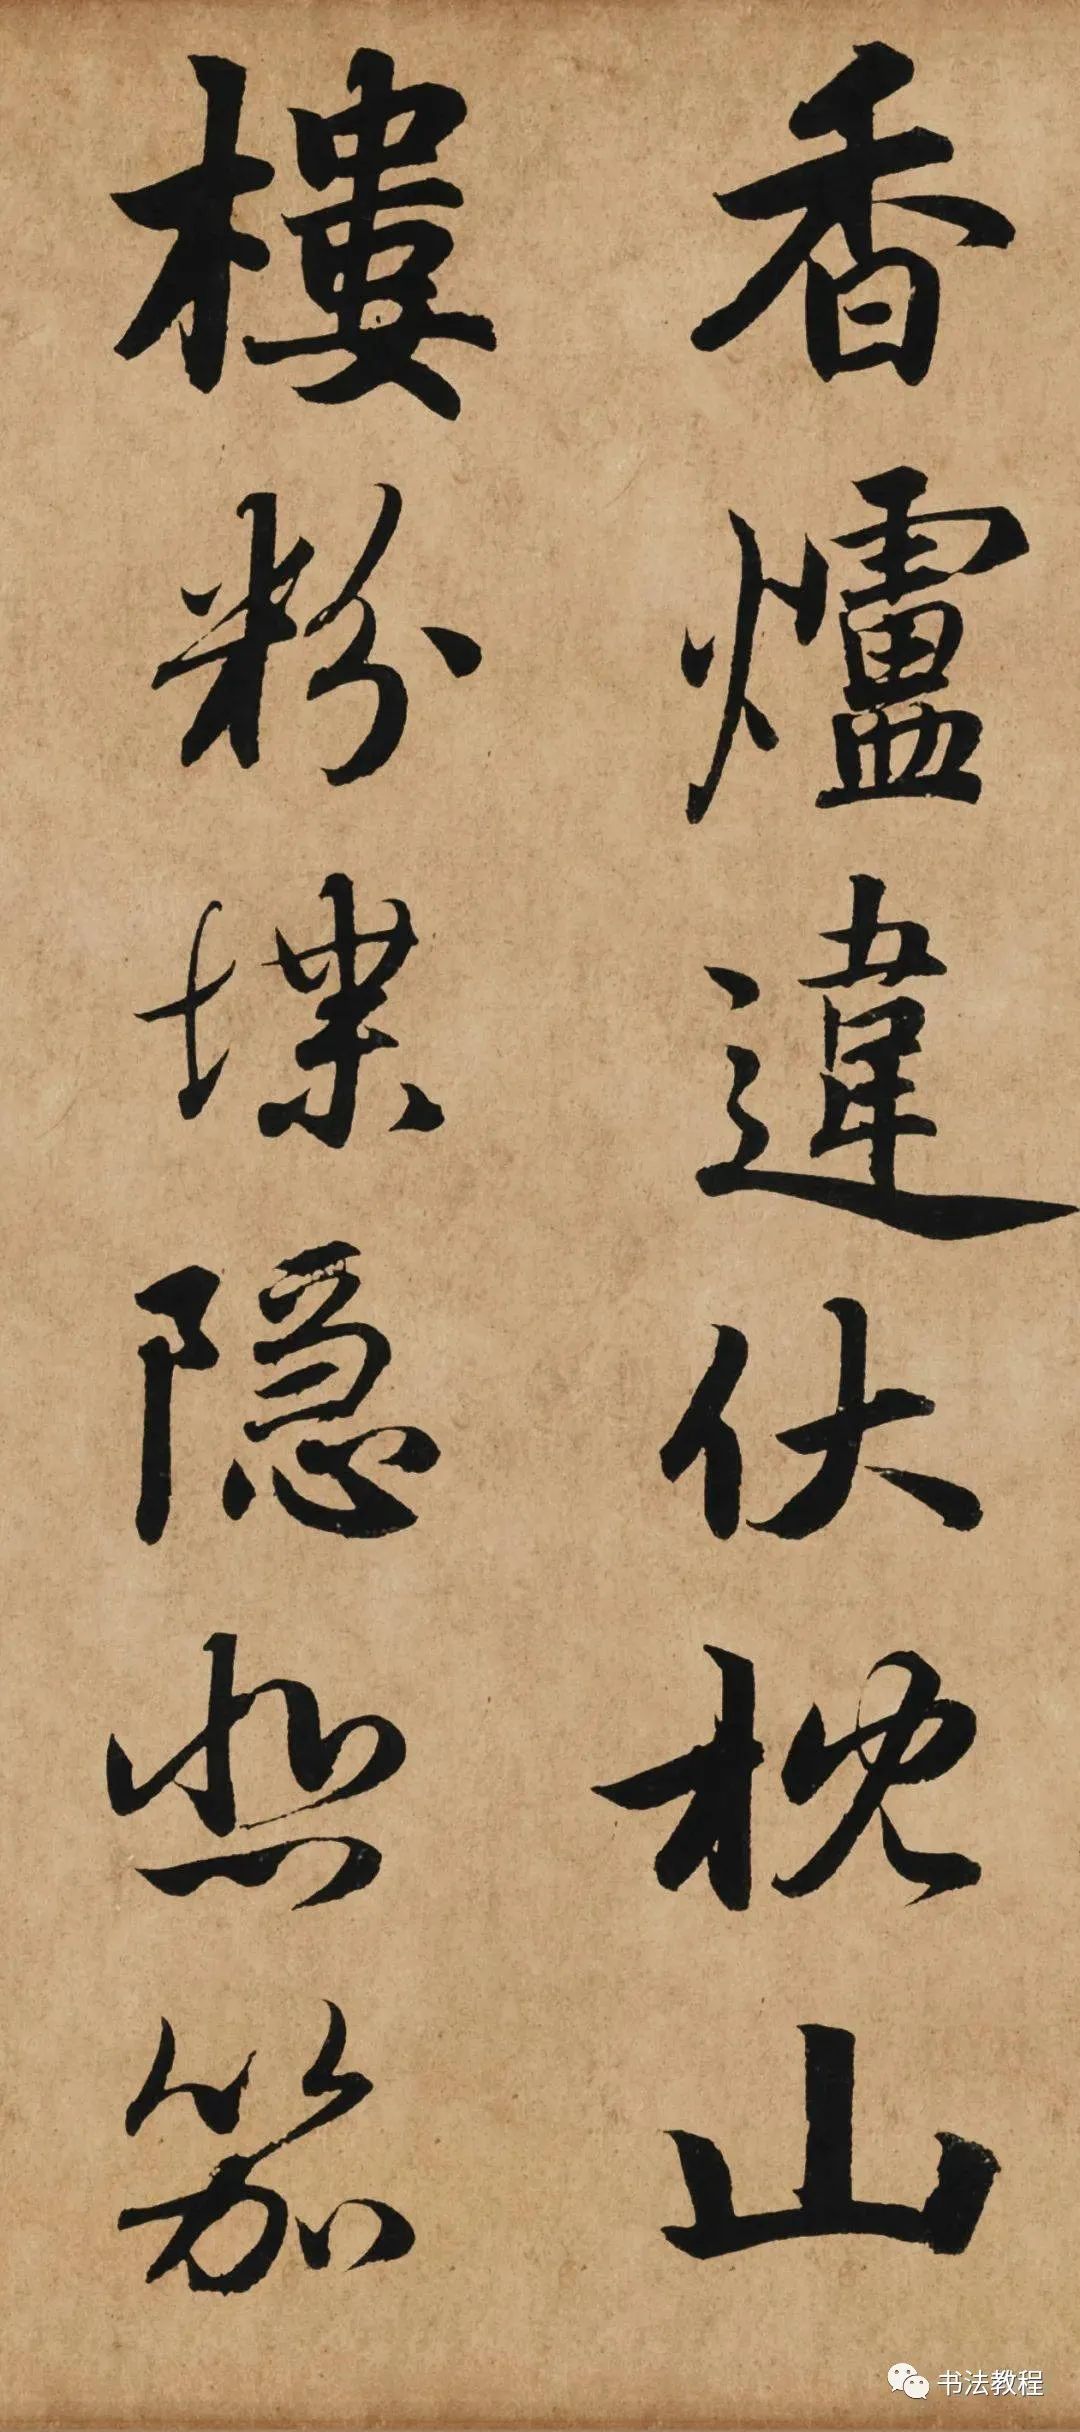 香爐違伏枕山
樓粉堞隱悲笳
书法教程